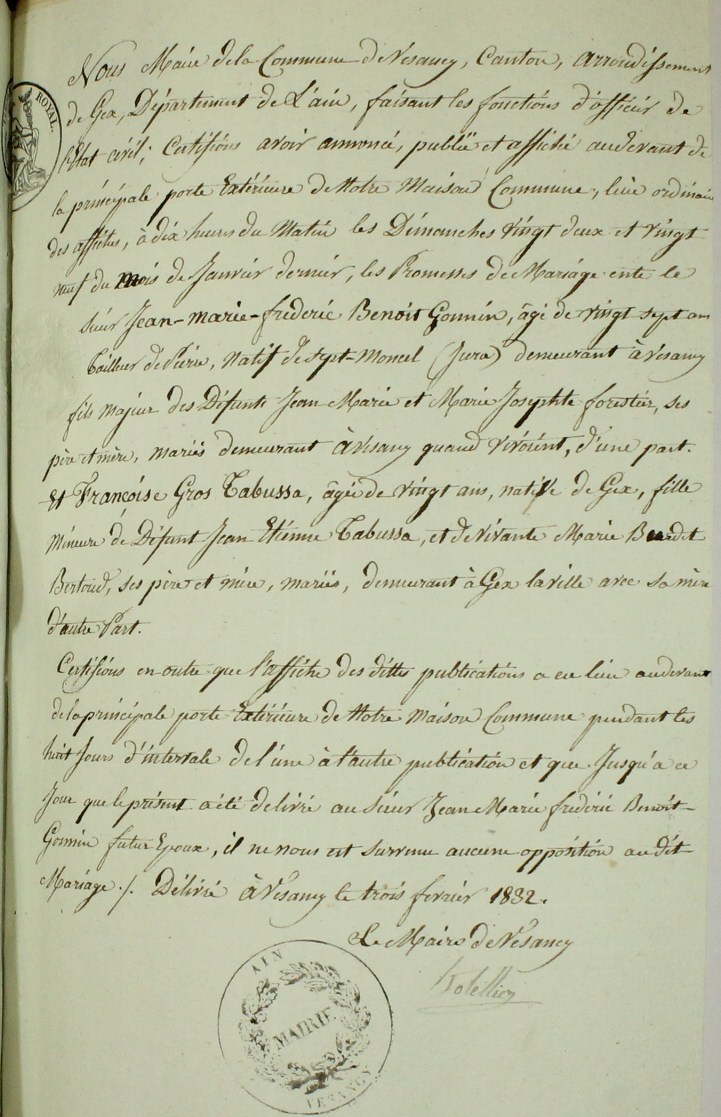 ROYAL.
Nous Maire de la Commune de Vésancy, Canton, arrondissement
de Gex, Département de L'ain, faisant les fonctions d'officier de
l'Etat civil; Certifions avoir annoncé, publié et affiché audevant de
la principale porte Extérieure de Notre Maison Commune, lieu ordinaire
des affiches, à dix heures du Matin les Dimanches vingt deux et vingt
neuf du mois de Janvier dernier, les Promesses de Mariage entre le
sieur Jean-marie-frederic Benoit Gonnin, âgé de vingt sept ans
Tailleur de Pierre, natif de sept-Moncel (Jura) demeurant à Vésancy
fils majeur des Défunts Jean Marie et Marie Josephte forestier, ses
père et mère, mariés demeurant à Vésancy quand vivoient, d'une part.
Et Françoise Gros Tabussa, âgée de vingt ans, native de Gex, fille
Mineure de Défunt Jean Etienne Tabussa, et de vivante Marie
Bertoud, ses père et mère, mariés, demeurant à Gex la ville avec sa mère
d'autre Part.
Certifions en outre que l'affiche des dittes publications a eu lieu audevant
de la principale porte Extérieure de Notre Maison Commune pendant les
huit Jours d'intervale de l'une à l'autre publication et que Jusqu'a ce
Jour que le présent a été délivré au sieur Jean Marie frédéric Benoit
Gonnin futur Epoux, il ne nous est survenu aucune opposition au dit
Mariage ./. Délivré à Vésancy le trois fevrier 1832.
Le Maire de Vésancy
AIN
MAIRIE
VESANCY